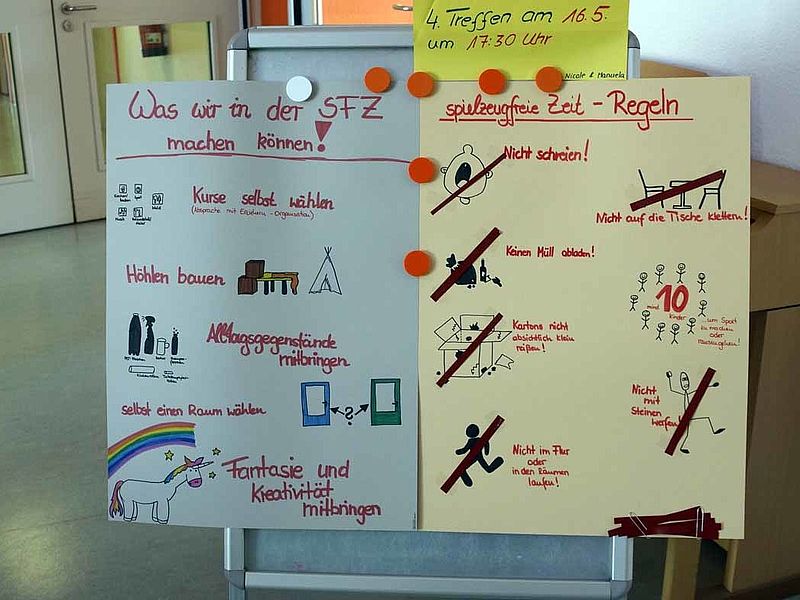 4. Treffen am 16.5.
um 17:30 Uhr
Nicole & Manuela
Was wir in der SFZ
machen können!
Kurse selbst wählen
Höhlen bauen
Alltagsgegenstände
mitbringen
selbst einen Raum wählen
?
Fantasie und
Kreativität
mitbringen
spielzeugfreie Zeit - Regeln
Nicht schreien!
Nicht auf die Tische klettern!
Keinen Müll abladen!
mind. 10
Kinder
um Sport
zu machen
oder
rauszugehen!
Kartons nicht
absichtlich klein
reißen!
Nicht
mit
Steinen
werfen!
Nicht im Flur
oder
in den Räumen
laufen!